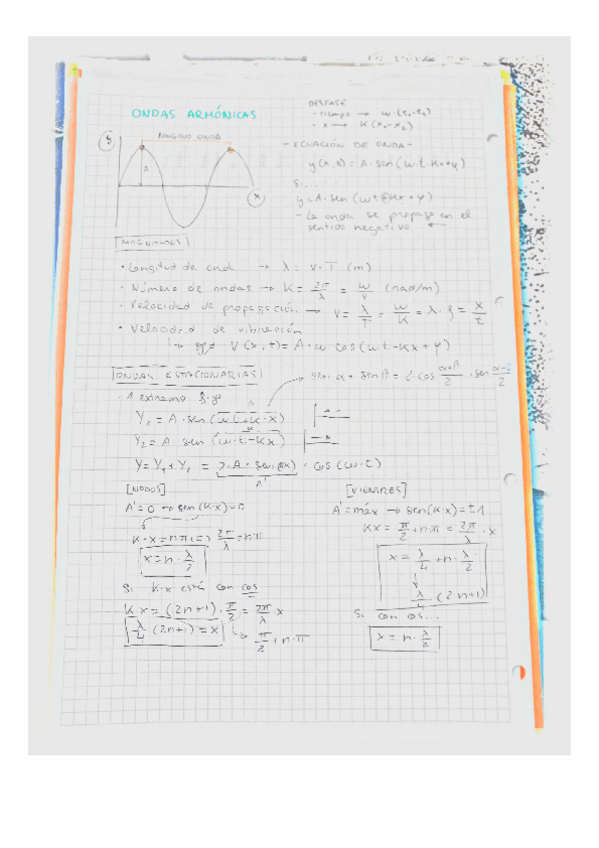 ONDAS ARMÓNICAS
DESFASE
- tiempo → w·(t₁-t₂)
- x → K(x₁-x₂)
LONGITUD ONDA
y
A
x
- ECUACIÓN DE ONDA -
y(x,t) = A·sen(w·t-Kx+φ)
Si...
y=A·sen(wt⊕Kx+φ)
- La onda se propaga en el
sentido negativo ←
MAGNITUDES
· Longitud de onda → λ = v·T (m)
· Número de ondas → K = 2π/λ = w/v (rad/m)
· Velocidad de propagación → V = λ/T = w/K = λ·f = x/t
· Velocidad de vibración
↳ V(x,t) = A·w·cos(wt-Kx+φ)
ONDAS ESTACIONARIAS
sen α + sen β = 2·cos (α+β)/2 · sen (α-β)/2
- 1 extremo
Y₁ = A·sen(w·t+K·x)
Y₂ = A sen (w·t-Kx)
Y = Y₁+Y₁ = 2·A·sen(Kx)·cos(w·t)
A'
[NODOS]
A'=0 → sen(K·x)=0
K·x=n·π => 2π/λ = nπ
x=n·λ/2
Si K·x está con cos
Kx=(2n+1)·π/2 = 2π/λ·x
λ/4 (2n+1) = x
↳ π/2+n·π
[VIENTRES]
A'=máx → sen(K·x)=±1
Kx = π/2+n·π = 2π/λ·x
x = λ/4+n·λ/2
↓
λ/4·(2n+1)
Si con cos...
x = n·λ/2